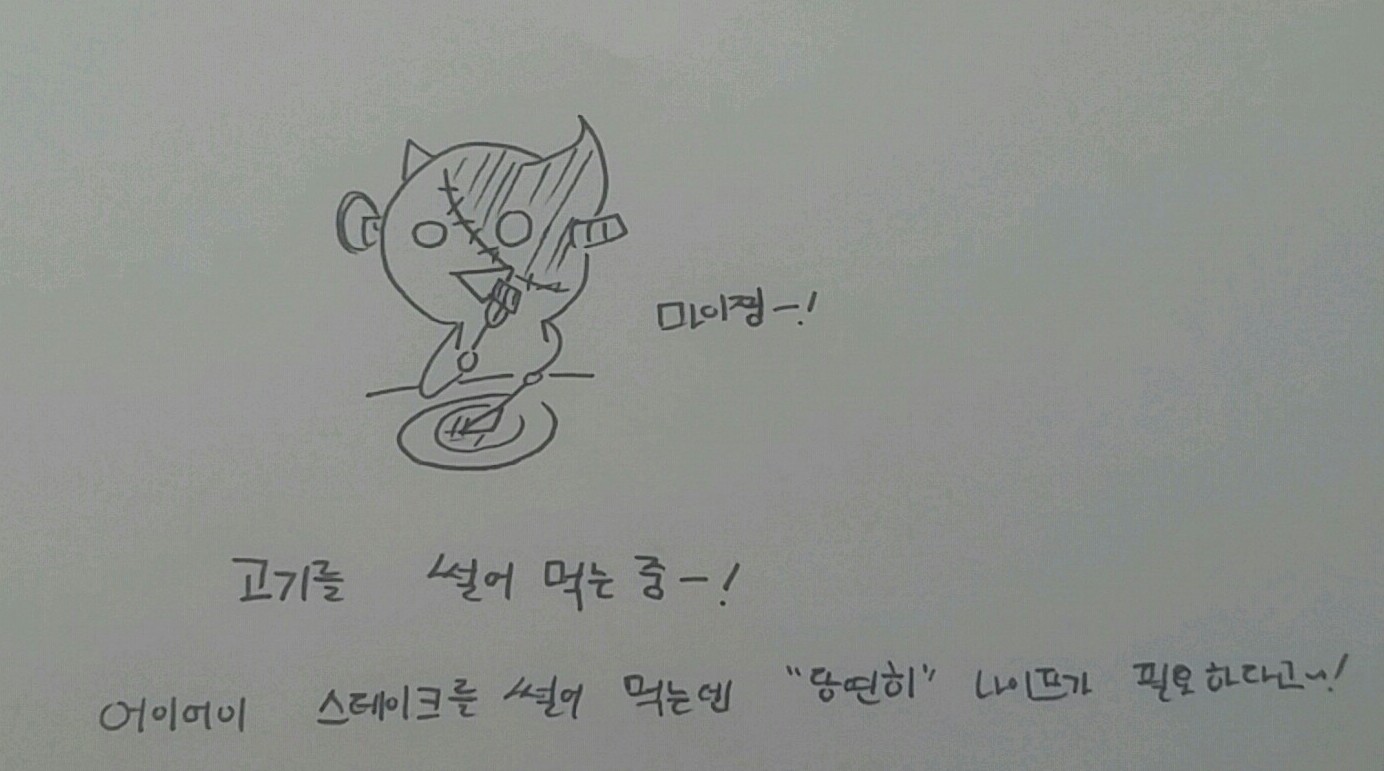 마이쪙-!
고기를 썰어 먹는 중-!
어이어이 스테이크를 썰어 먹는덴 "당연히" 나이프가 필요하다고~!